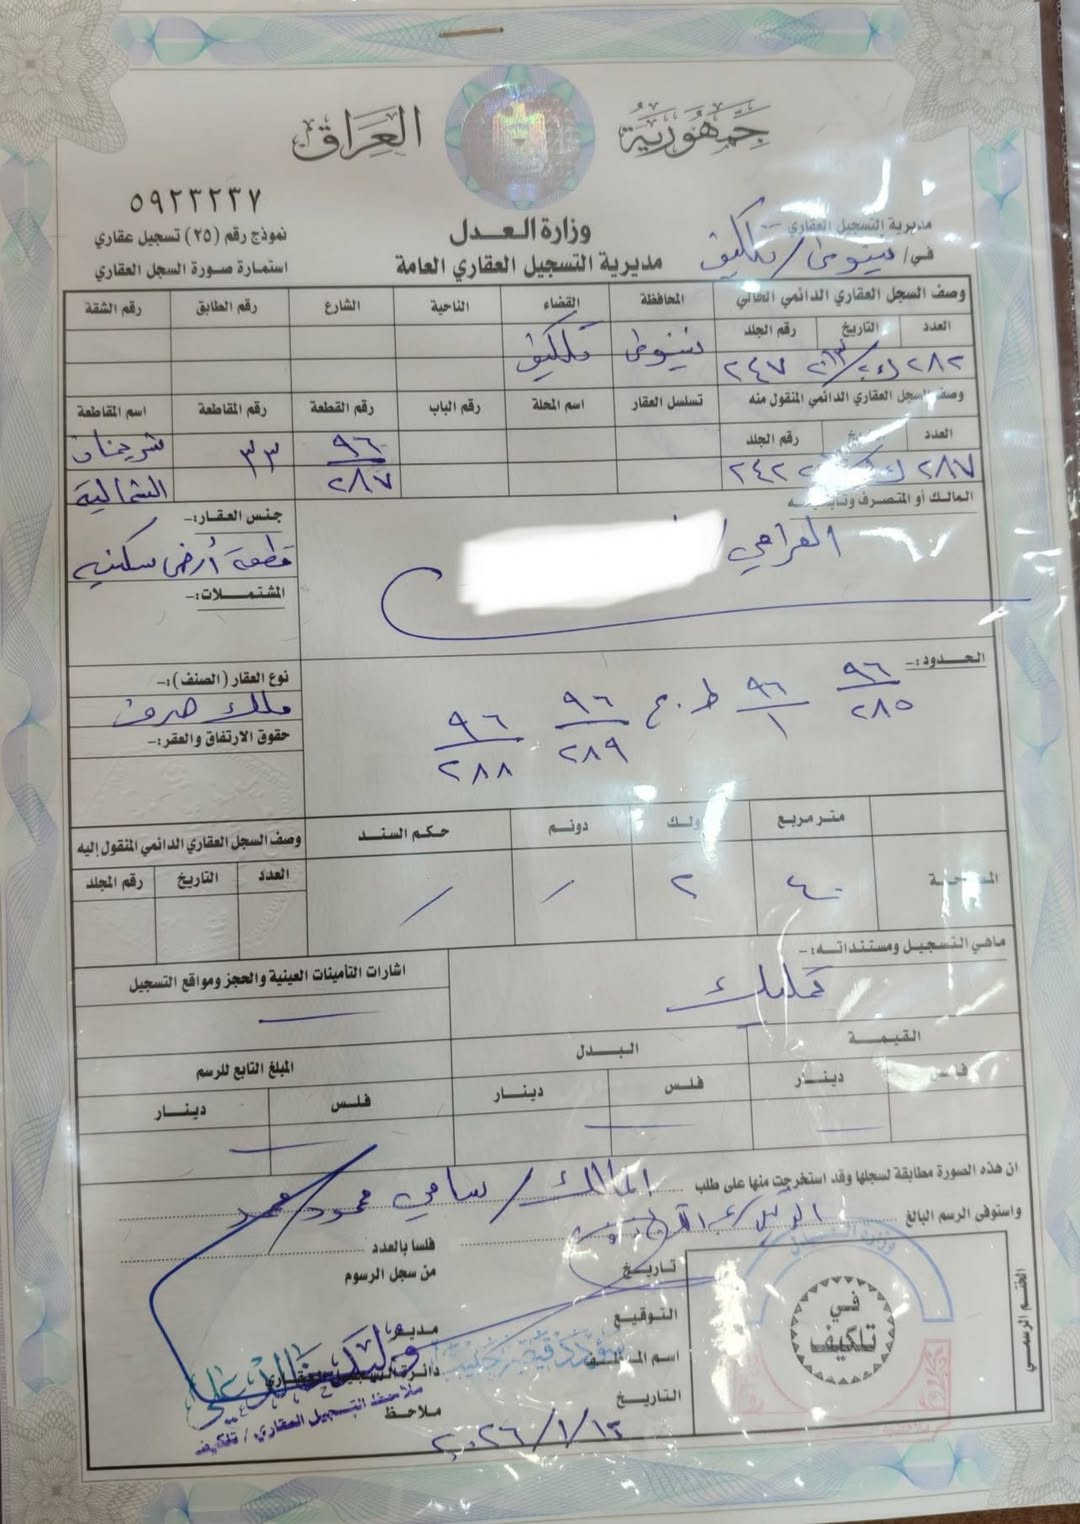 جمهورية العراق
٥٩٢٣٢٣٧
وزارة العدل
مديرية التسجيل العقاري العامة
مديرية التسجيل العقاري
في/ نينوى/ تلكيف
نموذج رقم (٢٥) تسجيل عقاري
استمارة صورة السجل العقاري
وصف السجل العقاري الدائمي الحالي
المحافظة القضاء الناحية الشارع رقم الطابق رقم الشقة
العدد التاريخ رقم الجلد
٢٨٢ ٢٤٧
نينوى تلكيف
وصف السجل العقاري الدائمي المنقول منه
تسلسل العقار اسم المحلة رقم الباب رقم القطعة رقم المقاطعة اسم المقاطعة
العدد رقم الجلد
٢٨٧ ٢٤٢
٩٦/٢٨٧ ٣٣ شريخان الشمالية
المالك أو المتصرف وتابعيته
العراقي/
جنس العقار:-
قطعة أرض سكنية
المشتملات:-
الحدود:-
٩٦/٢٨٥ ٩٦/١ ط.ع ٩٦/٢٨٩ ٩٦/٢٨٨
نوع العقار (الصنف):-
ملك صرف
حقوق الارتفاق والعقر:-
متر مربع اولك دونم حكم السند
المساحة
٤٠ ٢ / /
وصف السجل العقاري الدائمي المنقول إليه
العدد التاريخ رقم الجلد
ماهي التسجيل ومستنداته:-
تمليك
اشارات التأمينات العينية والحجز ومواقع التسجيل
القيمة البدل المبلغ التابع للرسم
فلس دينار فلس دينار فلس دينار
ان هذه الصورة مطابقة لسجلها وقد استخرجت منها على طلب المالك/ سامي محمود/
واستوفى الرسم البالغ
فلسا بالعدد
تاريخ من سجل الرسوم
التوقيع مدير
اسم الموظف دائرة التسجيل العقاري
التاريخ ملاحظ
٢٠٢٦/١/١٣
وليد خالد علي
ملاحظ التسجيل العقاري / تلكيف
الختم الرسمي
وزارة العدل
في
تلكيف